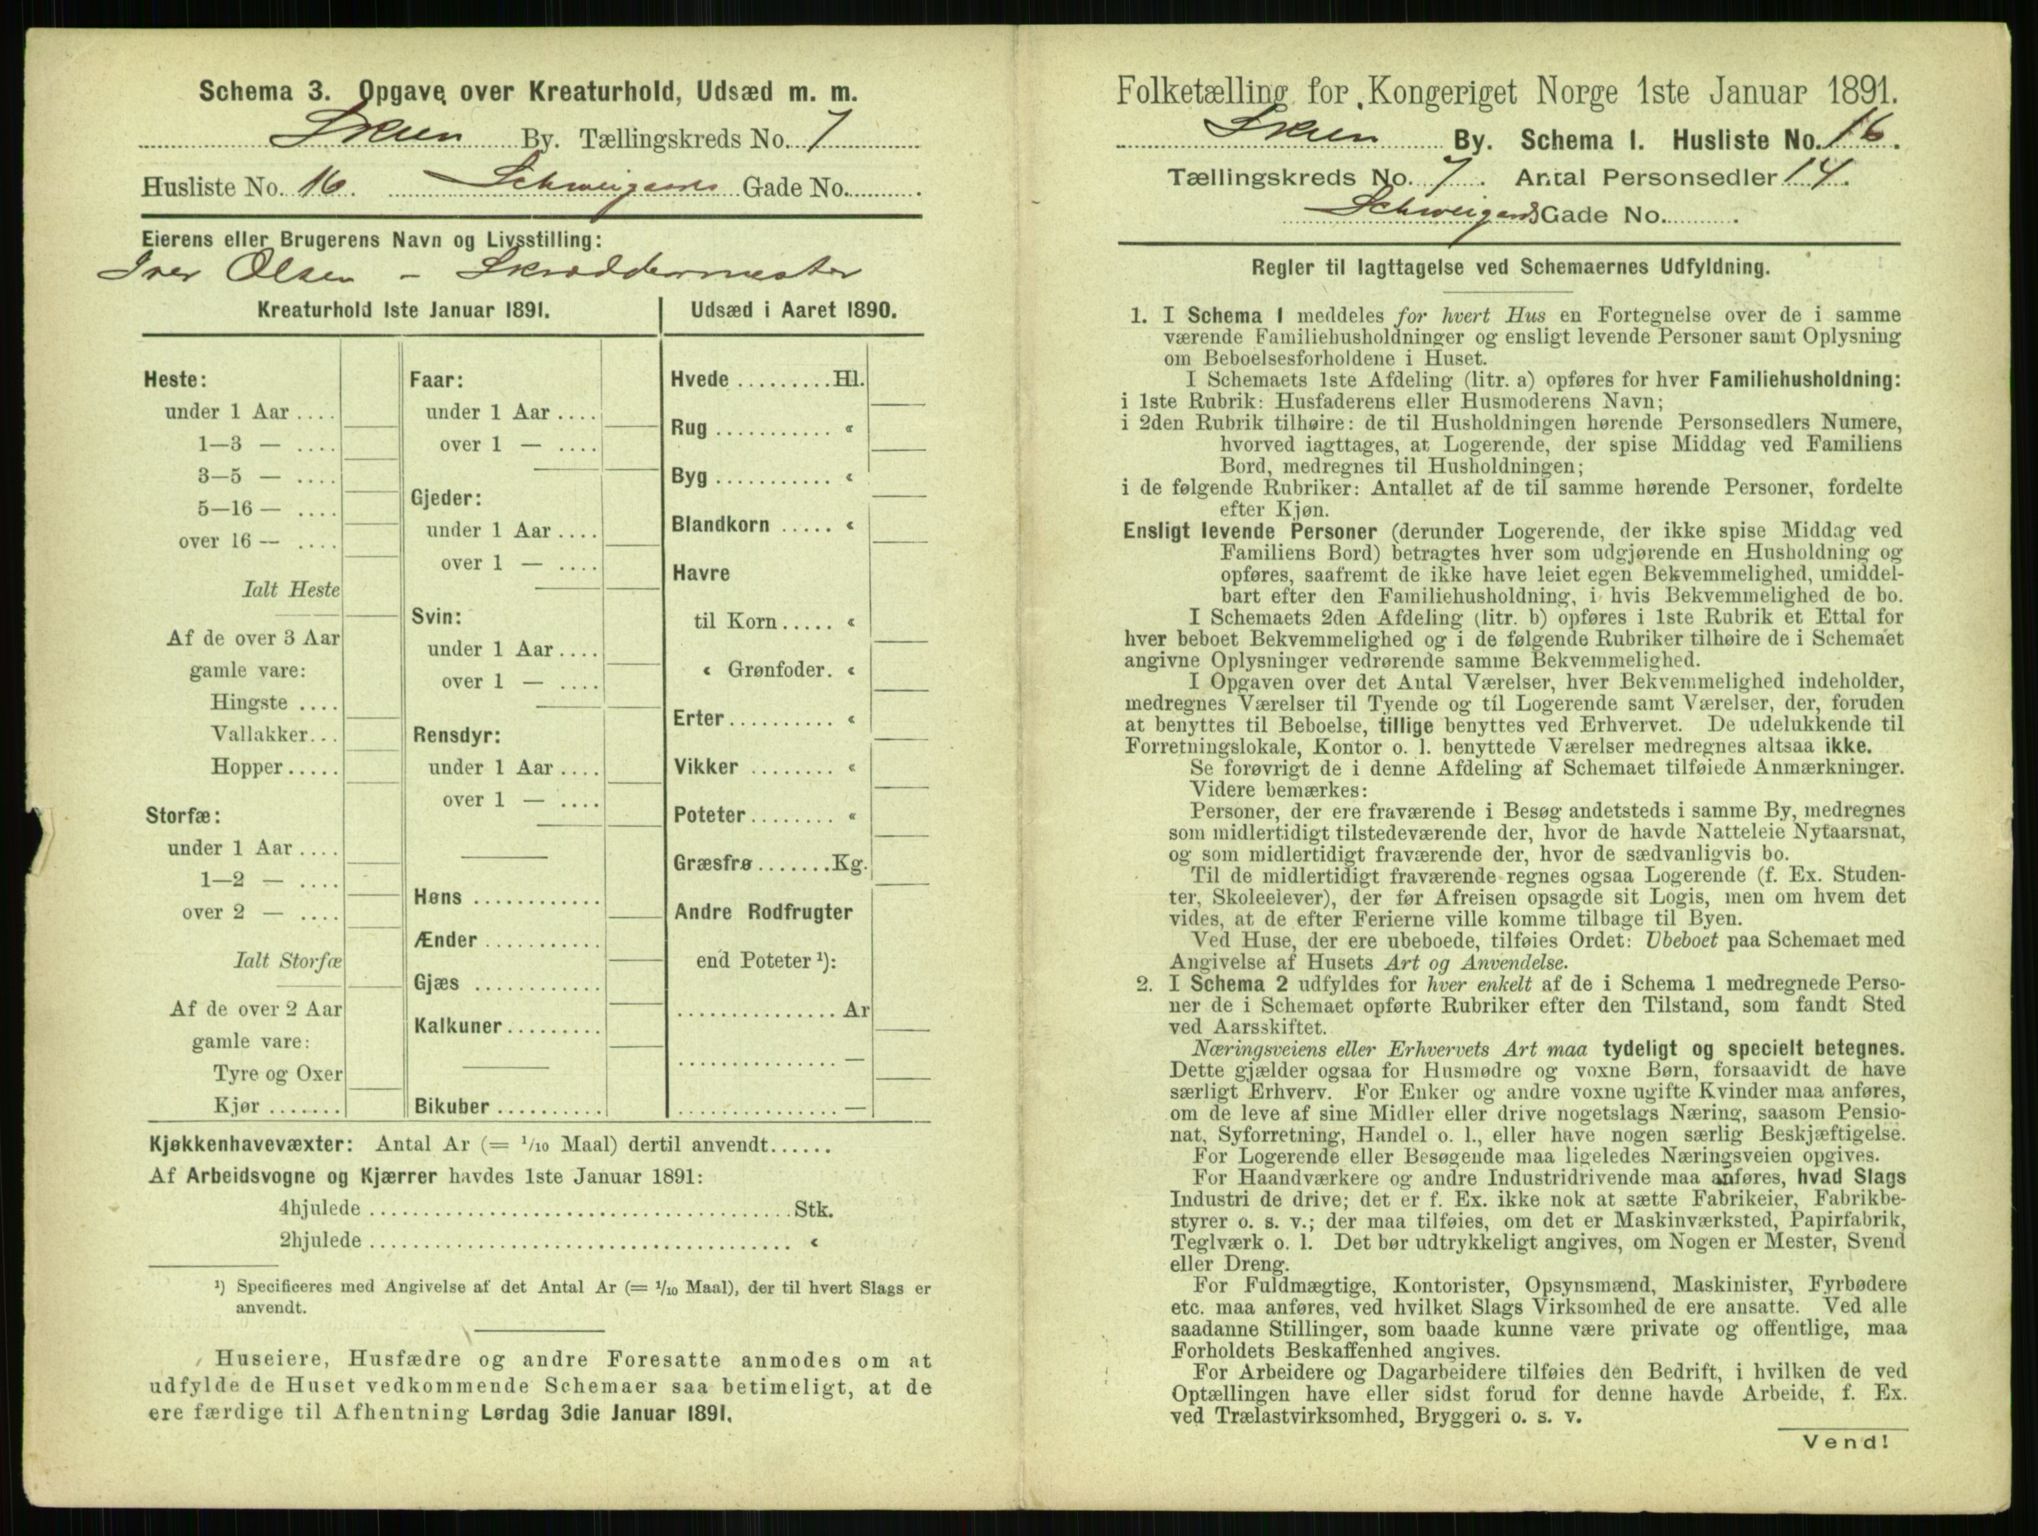 Schema 3. Opgave over Kreaturhold, Udsæd m. m.
Skien By. Tællingskreds No. 7
Husliste No. 16. Schweigaards Gade No.
Eierens eller Brugerens Navn og Livsstilling:
Iver Olsen - Skræddermester
Kreaturhold 1ste Januar 1891.
Heste:
under 1 Aar ....
1—3 — ....
3—5 — ....
5—16 — ....
over 16 — ....
Ialt Heste
Af de over 3 Aar
gamle vare:
Hingste ....
Vallakker...
Hopper.....
Storfæ:
under 1 Aar ....
1—2 — ....
over 2 — ....
Ialt Storfæ
Af de over 2 Aar
gamle vare:
Tyre og Oxer
Kjør .......
Faar:
under 1 Aar ....
over 1 — ....
Gjeder:
under 1 Aar ....
over 1 — ....
Svin:
under 1 Aar ....
over 1 — ....
Rensdyr:
under 1 Aar ....
over 1 — ....
Høns ............
Ænder ...........
Gjæs ............
Kalkuner.........
Bikuber ..........
Udsæd i Aaret 1890.
Hvede .........Hl.
Rug ........... «
Byg ........... «
Blandkorn ..... «
Havre
til Korn..... «
« Grønfoder. «
Erter.......... «
Vikker ........ «
Poteter........ «
Græsfrø.......Kg.
Andre Rodfrugter
end Poteter ¹):
............... Ar
............... —
............... —
Kjøkkenhavevæxter: Antal Ar (= 1/10 Maal) dertil anvendt......
Af Arbeidsvogne og Kjærrer havdes 1ste Januar 1891:
4hjulede ........................................Stk.
2hjulede ........................................ «
¹) Specificeres med Angivelse af det Antal Ar (= 1/10 Maal), der til hvert Slags er
anvendt.
Huseiere, Husfædre og andre Foresatte anmodes om at
udfylde de Huset vedkommende Schemaer saa betimeligt, at de
ere færdige til Afhentning Lørdag 3die Januar 1891.
Folketælling for Kongeriget Norge 1ste Januar 1891.
Skien By. Schema 1. Husliste No. 16.
Tællingskreds No. 7. Antal Personsedler 14.
Schweigards Gade No.
Regler til Iagttagelse ved Schemaernes Udfyldning.
1. I Schema 1 meddeles for hvert Hus en Fortegnelse over de i samme
værende Familiehusholdninger og ensligt levende Personer samt Oplysning
om Beboelsesforholdene i Huset.
I Schemaets 1ste Afdeling (litr. a) opføres for hver Familiehusholdning:
i 1ste Rubrik: Husfaderens eller Husmoderens Navn;
i 2den Rubrik tilhøire: de til Husholdningen hørende Personsedlers Numere,
hvorved iagttages, at Logerende, der spise Middag ved Familiens
Bord, medregnes til Husholdningen;
i de følgende Rubriker: Antallet af de til samme hørende Personer, fordelte
efter Kjøn.
Ensligt levende Personer (derunder Logerende, der ikke spise Middag ved
Familiens Bord) betragtes hver som udgjørende en Husholdning og
opføres, saafremt de ikke have leiet egen Bekvemmelighed, umiddel-
bart efter den Familiehusholdning, i hvis Bekvemmelighed de bo.
I Schemaets 2den Afdeling (litr. b) opføres i 1ste Rubrik et Ettal for
hver beboet Bekvemmelighed og i de følgende Rubriker tilhøire de i Schemaet
angivne Oplysninger vedrørende samme Bekvemmelighed.
I Opgaven over det Antal Værelser, hver Bekvemmelighed indeholder,
medregnes Værelser til Tyende og til Logerende samt Værelser, der, foruden
at benyttes til Beboelse, tillige benyttes ved Erhvervet. De udelukkende til
Forretningslokale, Kontor o. l. benyttede Værelser medregnes altsaa ikke.
Se forøvrigt de i denne Afdeling af Schemaet tilføiede Anmærkninger.
Videre bemærkes:
Personer, der ere fraværende i Besøg andetsteds i samme By, medregnes
som midlertidigt tilstedeværende der, hvor de havde Natteleie Nytaarsnat,
og som midlertidigt fraværende der, hvor de sædvanligvis bo.
Til de midlertidigt fraværende regnes ogsaa Logerende (f. Ex. Studen-
ter, Skoleelever), der før Afreisen opsagde sit Logis, men om hvem det
vides, at de efter Ferierne ville komme tilbage til Byen.
Ved Huse, der ere ubeboede, tilføies Ordet: Ubeboet paa Schemaet med
Angivelse af Husets Art og Anvendelse.
2. I Schema 2 udfyldes for hver enkelt af de i Schema 1 medregnede Perso-
ner de i Schemaet opførte Rubriker efter den Tilstand, som fandt Sted
ved Aarsskiftet.
Næringsveiens eller Erhvervets Art maa tydeligt og specielt betegnes.
Dette gjælder ogsaa for Husmødre og voxne Børn, forsaavidt de have
særligt Erhverv. For Enker og andre voxne ugifte Kvinder maa anføres,
om de leve af sine Midler eller drive nogetslags Næring, saasom Pensio-
nat, Syforretning, Handel o. l., eller have nogen særlig Beskjæftigelse.
For Logerende eller Besøgende maa ligeledes Næringsveien opgives.
For Haandværkere og andre Industridrivende maa anføres, hvad Slags
Industri de drive; det er f. Ex. ikke nok at sætte Fabrikeier, Fabrikbe-
styrer o. s. v.; der maa tilføies, om det er Maskinværksted, Papirfabrik,
Teglværk o. l. Det bør udtrykkeligt angives, om Nogen er Mester, Svend
eller Dreng.
For Fuldmægtige, Kontorister, Opsynsmænd, Maskinister, Fyrbødere
etc. maa anføres, ved hvilket Slags Virksomhed de ere ansatte. Ved alle
saadanne Stillinger, som baade kunne være private og offentlige, maa
Forholdets Beskaffenhed angives.
For Arbeidere og Dagarbeidere tilføies den Bedrift, i hvilken de ved
Optællingen have eller sidst forud for denne havde Arbeide, f. Ex.
ved Trælastvirksomhed, Bryggeri o. s. v.
Vend!